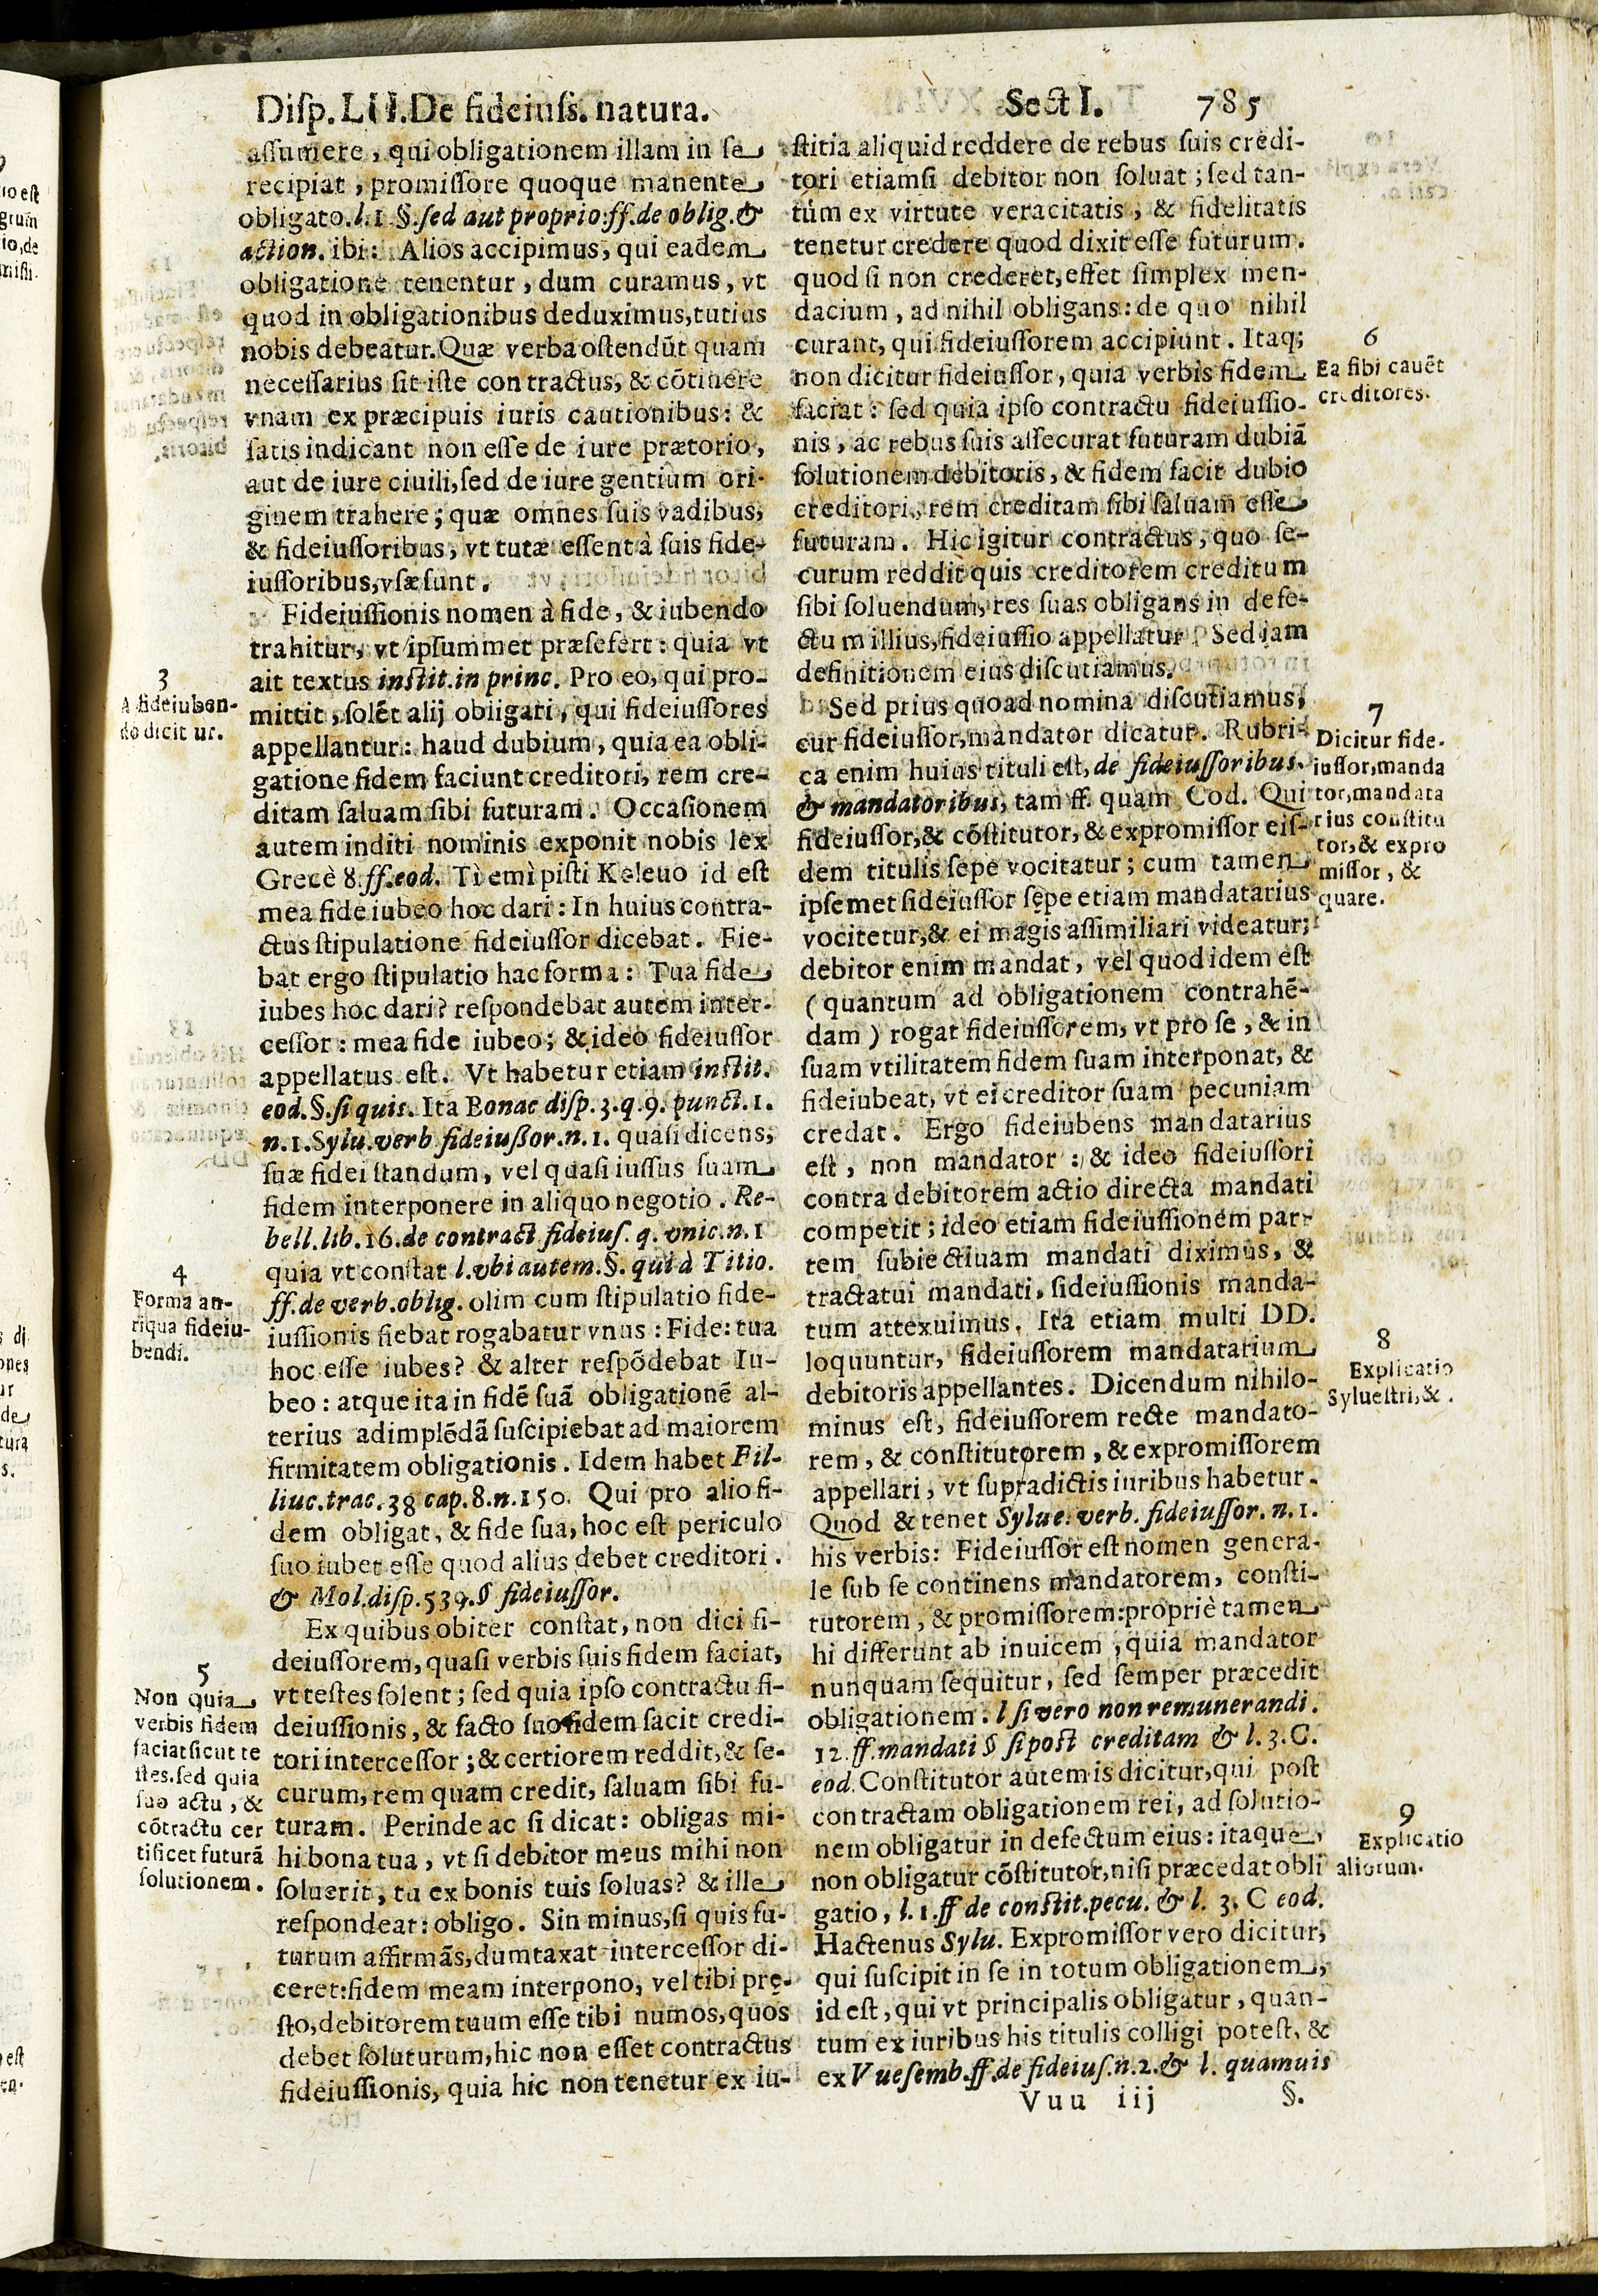 Disp. LII. De fideiuss. natura. Sect I. 785
assumere, qui obligationem illam in se
recipiat, promissore quoque manente
obligato. l. 1 §. sed aut proprio: ff. de oblig. &
action. ibi: Alios accipimus, qui eadem
obligatione tenentur, dum curamus, vt
quod in obligationibus deduximus, tutius
nobis debeatur. Quæ verba ostendūt quam
necessarius sit iste contractus, & cōtinere
vnam ex præcipuis iuris cautionibus: &
satis indicant non esse de iure prætorio,
aut de iure ciuili, sed de iure gentium ori-
ginem trahere; quæ omnes suis vadibus,
& fideiussoribus, vt tutæ essent à suis fide-
iussoribus, vsæ sunt.
Fideiussionis nomen à fide, & iubendo
trahitur, vt ipsummet præsefert: quia vt
ait textus instit. in princ. Pro eo, qui pro-
mittit, solēt alij obligari, qui fideiussores
appellantur: haud dubium, quia ea obli-
gatione fidem faciunt creditori, rem cre-
ditam saluam sibi futuram. Occasionem
autem inditi nominis exponit nobis lex
Grecè 8. ff. eod. Tì emì pisti Keleuo id est
mea fide iubeo hoc dari: In huius contra-
ctus stipulatione fideiussor dicebat. Fie-
bat ergo stipulatio hac forma: Tua fide
iubes hoc dari? respondebat autem inter-
cessor: mea fide iubeo; & ideo fideiussor
appellatus est. Vt habetur etiam instit.
eod. §. si quis. Ita Bonac disp. 3. q. 9. punct. 1.
n. 1. Sylu. verb fideiussor. n. 1. quasi dicens;
suæ fidei standum, vel quasi iussus suam
fidem interponere in aliquo negotio. Re-
bell. lib. 16. de contract fideius. q. vnic. n. 1
quia vt constat l. vbi autem. §. qui à Titio.
ff. de verb. oblig. olim cum stipulatio fide-
iussionis fiebat rogabatur vnus: Fide: tua
hoc esse iubes? & alter respōdebat Iu-
beo: atque ita in fidē suā obligationē al-
terius adimplēdā suscipiebat ad maiorem
firmitatem obligationis. Idem habet Fil-
liuc. trac. 38 cap. 8. n. 150. Qui pro alio fi-
dem obligat, & fide sua, hoc est periculo
suo iubet esse quod alius debet creditori.
& Mol. disp. 539. § fideiussor.
Ex quibus obiter constat, non dici fi-
deiussorem, quasi verbis suis fidem faciat,
vt testes solent; sed quia ipso contractu fi-
deiussionis, & facto suo fidem facit credi-
tori intercessor; & certiorem reddit, & se-
curum, rem quam credit, saluam sibi fu-
turam. Perinde ac si dicat: obligas mi-
hi bona tua, vt si debitor meus mihi non
soluerit, tu ex bonis tuis soluas? & ille
respondeat: obligo. Sin minus, si quis fu-
turum affirmās, dumtaxat intercessor di-
ceret: fidem meam interpono, vel tibi prę-
sto, debitorem tuum esse tibi numos, quos
debet soluturum, hic non esset contractus
fideiussionis, quia hic non tenetur ex iu-
3
A fideiuben-
do dicitur.
4
Forma an-
tiqua fideiu-
bendi.
5
Non quia
verbis fidem
faciat sicut te
stes. sed quia
suo actu, &
cōtractu cer
tificet futurā
solutionem.
stitia aliquid reddere de rebus suis credi-
tori etiamsi debitor non soluat; sed tan-
tùm ex virtute veracitatis, & fidelitatis
tenetur credere quod dixit esse futurum.
quod si non crederet, esset simplex men-
dacium, ad nihil obligans: de quo nihil
curant, qui fideiussorem accipiunt. Itaq;
non dicitur fideiussor, quia verbis fidem
faciat: sed quia ipso contractu fideiussio-
nis, ac rebus suis assecurat futuram dubiā
solutionem debitoris, & fidem facit dubio
creditori, rem creditam sibi saluam esse
futuram. Hic igitur contractus, quo se-
curum reddit quis creditorem creditum
sibi soluendum, res suas obligans in defe-
ctum illius, fideiussio appellatur. Sed iam
definitionem eius discutiamus.
Sed prius quoad nomina discutiamus,
cur fideiussor, mandator dicatur. Rubri-
ca enim huius tituli est, de fideiussoribus.
& mandatoribus, tam ff. quam Cod. Qui
fideiussor, & cōstitutor, & expromissor eis-
dem titulis sepe vocitatur; cum tamen
ipsemet fideiussor sępe etiam mandatarius
vocitetur, & ei magis assimiliari videatur;
debitor enim mandat, vel quod idem est
(quantum ad obligationem contrahē-
dam) rogat fideiussorem, vt pro se, & in
suam vtilitatem fidem suam interponat, &
fideiubeat, vt ei creditor suam pecuniam
credat. Ergo fideiubens mandatarius
est, non mandator: & ideo fideiussori
contra debitorem actio directa mandati
competit; ideo etiam fideiussionem par-
tem subiectiuam mandati diximus, &
tractatui mandati, fideiussionis manda-
tum attexuimus. Ita etiam multi DD.
loquuntur, fideiussorem mandatarium
debitoris appellantes. Dicendum nihilo-
minus est, fideiussorem recte mandato-
rem, & constitutorem, & expromissorem
appellari, vt supradictis iuribus habetur.
Quod & tenet Sylue. verb. fideiussor. n. 1.
his verbis: Fideiussor est nomen genera-
le sub se continens mandatorem, consti-
tutorem, & promissorem: propriè tamen
hi differunt ab inuicem, quia mandator
nunquam sequitur, sed semper præcedit
obligationem. l si vero non remunerandi.
12. ff. mandati § si post creditam & l. 3. C.
eod. Constitutor autem is dicitur, qui post
contractam obligationem rei, ad solutio-
nem obligatur in defectum eius: itaque
non obligatur cōstitutor, nisi præcedat obli
gatio, l. 1. ff de constit. pecu. & l. 3. C eod.
Hactenus Sylu. Expromissor vero dicitur,
qui suscipit in se in totum obligationem,
id est, qui vt principalis obligatur, quan-
tum ex iuribus his titulis colligi potest, &
ex Vuesemb. ff. de fideius. n. 2. & l. quamuis
6
Ea sibi cauēt
creditores.
7
Dicitur fide-
iussor, manda
tor, mandata
rius constitu
tor, & expro
missor, &
quare.
8
Explicatio
Syluestri, &.
9
Explicatio
aliorum.
Vuu iij §.